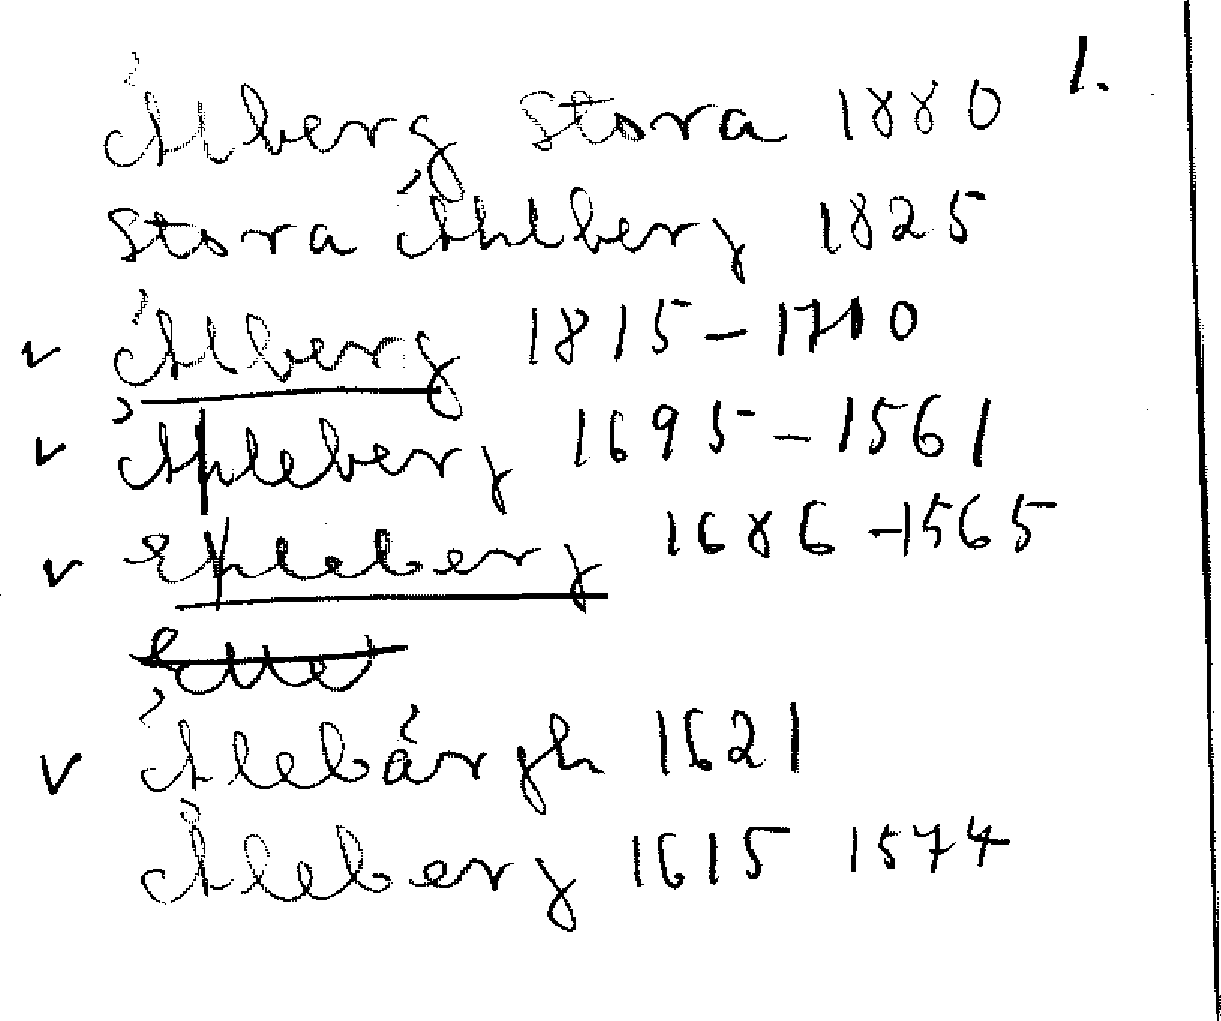 1.
Ålberg Stora 1880
Stora Åhlberg 1825
v Ålberg 1815–1710
v Åhleberg 1695–1561
v Ehleberg 1686–1565
v Ålebårgh 1621
Åleberg 1615 1574